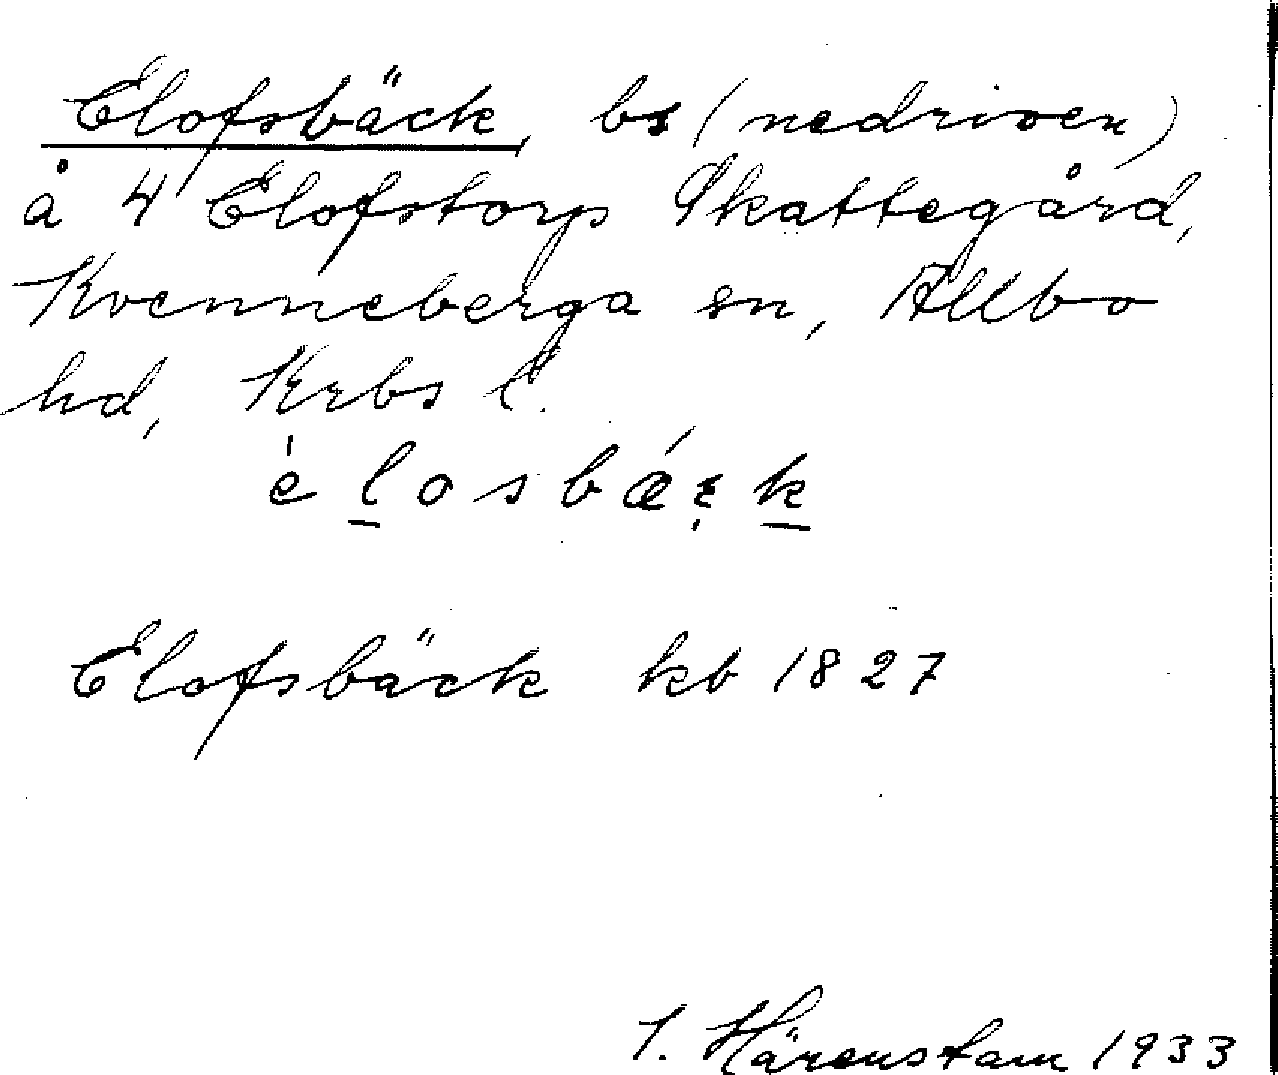 Elofsbäck, bs (nedriven)
å 4 Elofstorp Skattegård,
Kvenneberga sn, Allbo
hd, Krbs l.
Elofsbäck kb 1827
I. Härenstam 1933